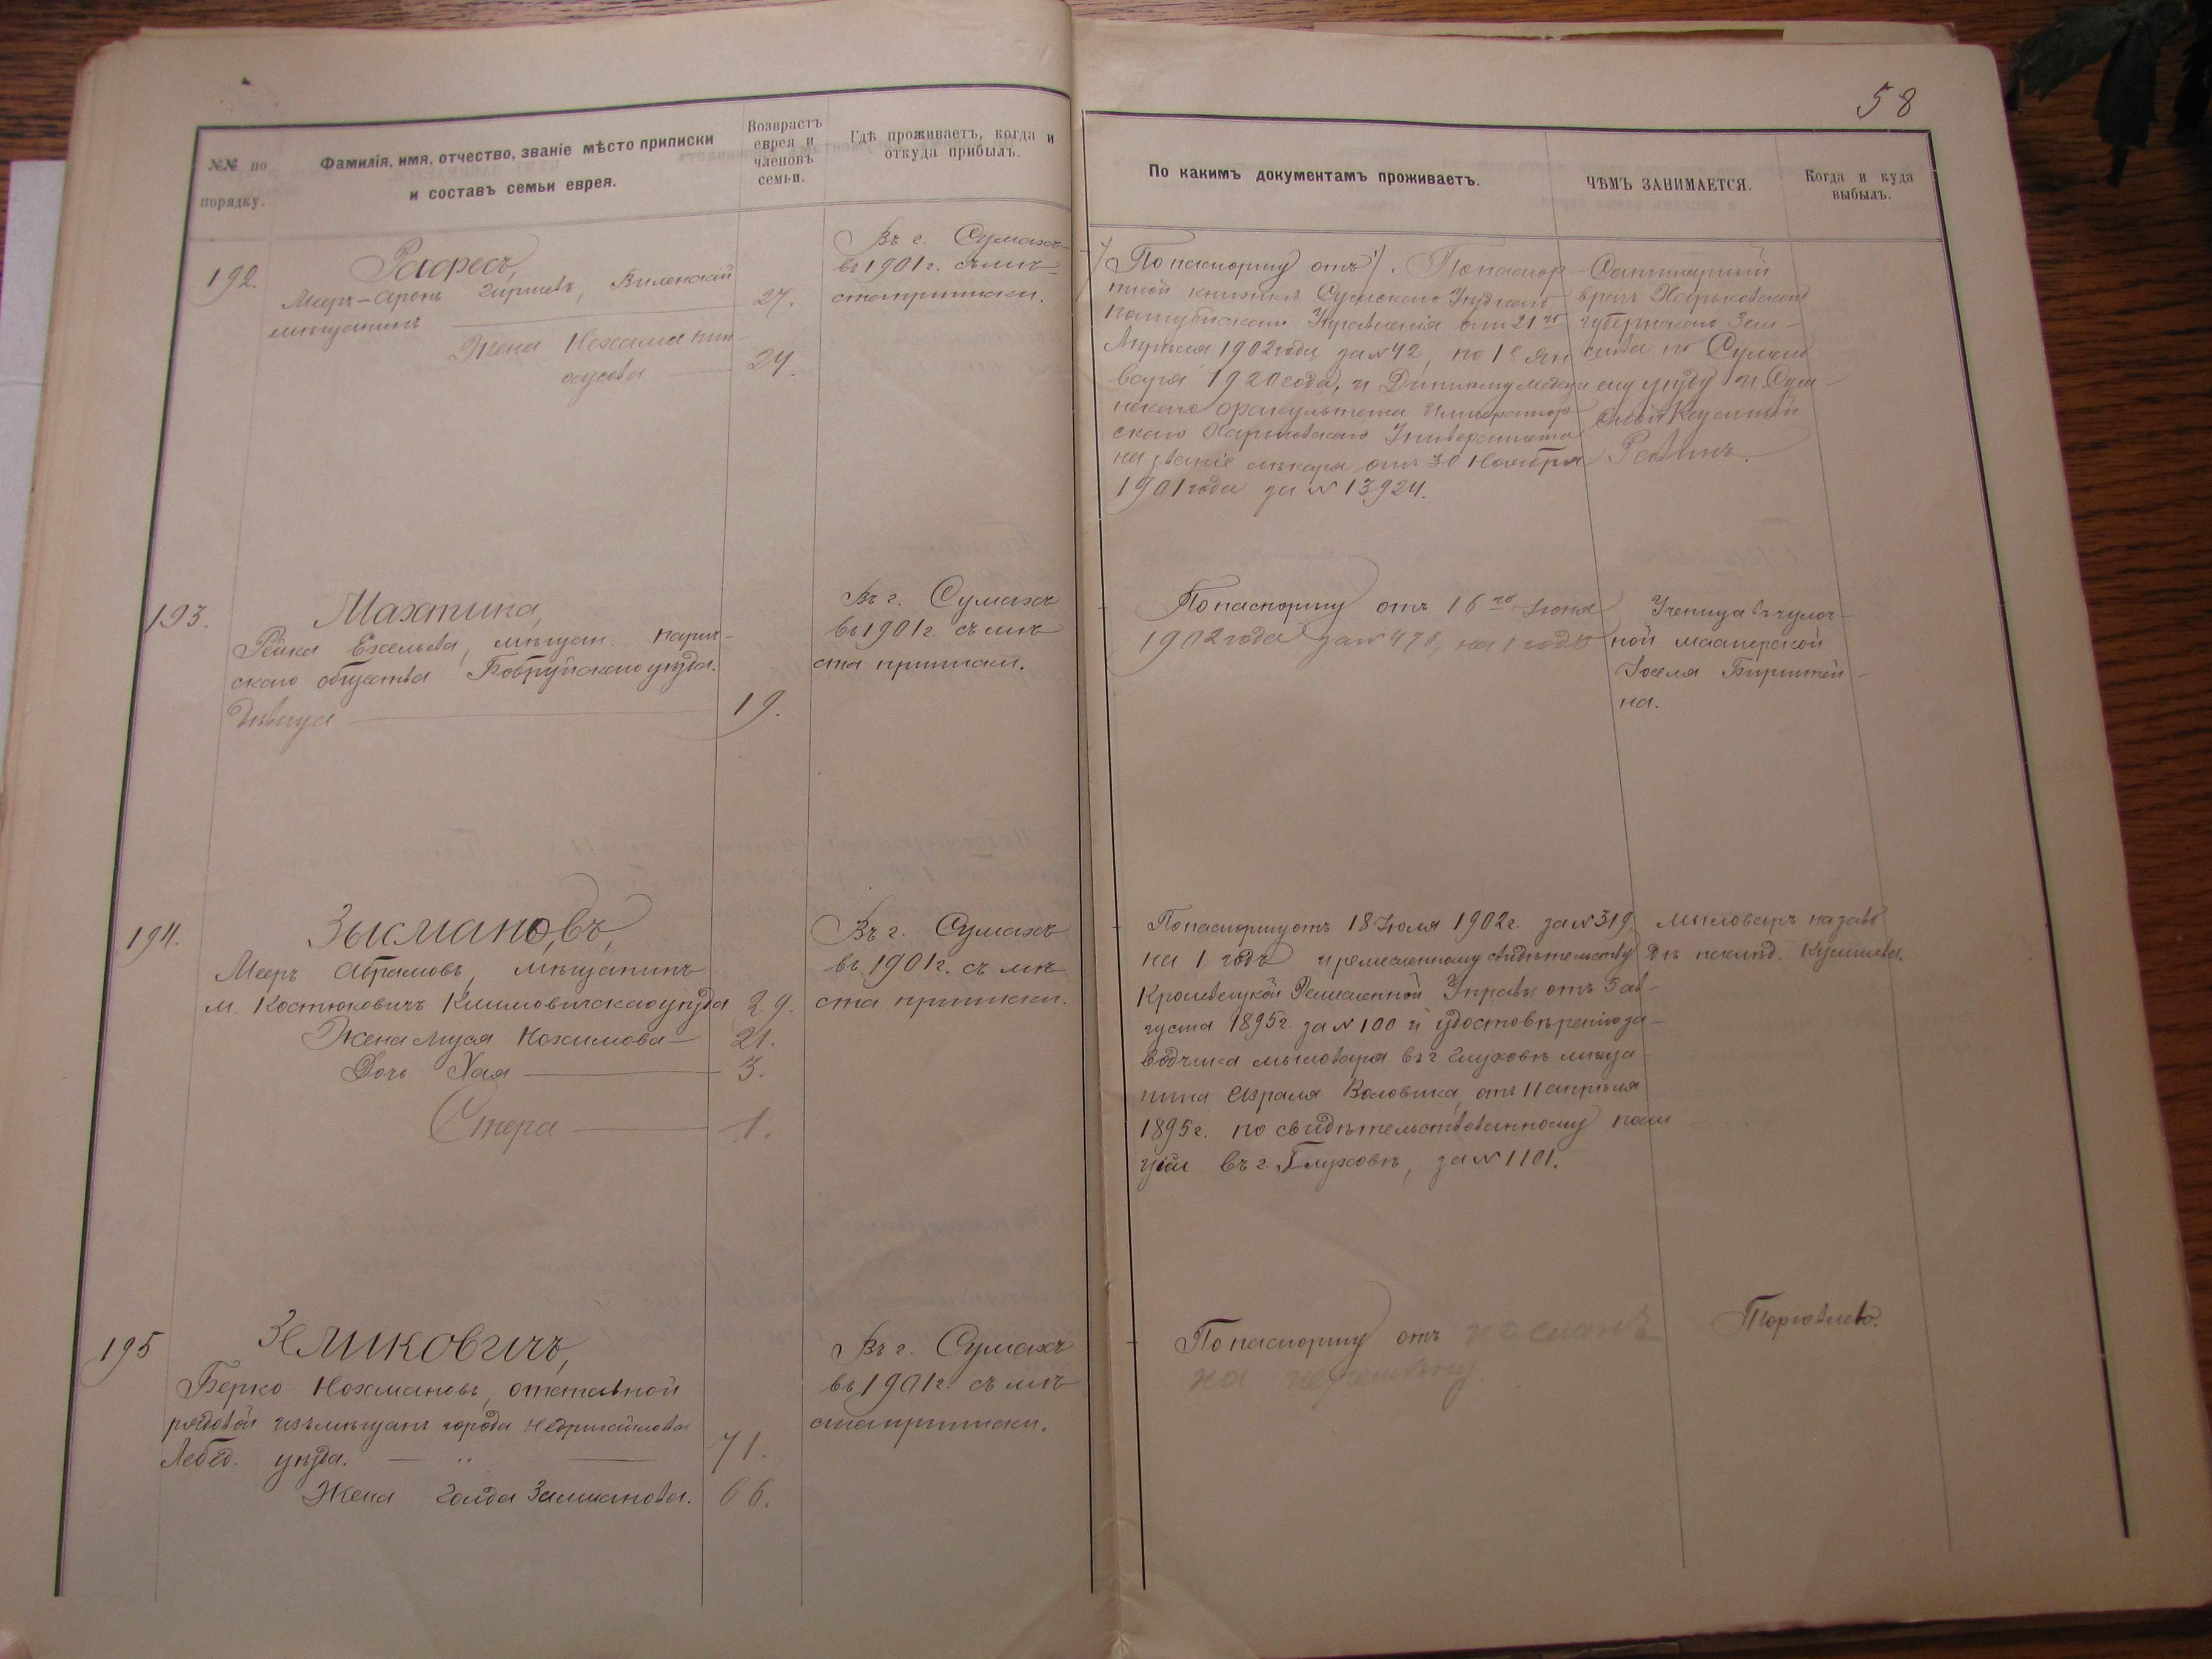 58
№№ по порядку.
Фамилія, имя, отчество, званіе мѣсто приписки
и составъ семьи еврея.
Возврастъ
еврея и
членовъ
семьи.
Гдѣ проживаетъ, когда и
откуда прибылъ.
По какимъ документамъ проживаетъ.
ЧѢМЪ ЗАНИМАЕТСЯ.
Когда и куда
выбылъ.
192.
Рафесъ,
Меер-Аронъ Гиршевъ, Виленскій
мѣщанинъ
27.
Жена Нехама
24.
Въ г. Сумахъ
въ 1901 г. съ мѣ-
ста приписки.
По паспорту отъ . По паспор-
тной книжкѣ Сумского Уѣздного
Полицейскаго Управленія отъ 21го
Апрѣля 1902 года за № 42, по 1е Ян
варя 1920 года, и Диплому медици
нскаго факультета Император-
скаго Харьковскаго Университета
на званіе лѣкаря отъ 30 Ноября
1901 года за № 13924.
Санитарный
врачъ Харьковскаго
губернскаго Зем-
ства по Сумско
му уѣзду и Сум-
скій Казенный
Равинъ.
193.
Махтина,
Рейка Еселева, мѣщан. Парич-
скаго общества Бобруйскаго уѣзда.
Дѣвица
19.
Въ г. Сумахъ
въ 1901 г. съ мѣ
ста приписки.
По паспорту отъ 16го Іюня
1902 года за № 470, на 1 годъ
Ученица въ чулоч-
ной мастерской
Іоселя Бирштей-
на.
194.
Зысмановъ,
Мееръ Абрамовъ, мѣщанинъ
м. Костюковичъ Климовичскаго уѣзда 29.
Жена Муся Нохимова 21.
Дочь Хая 3.
Стера 1.
Въ г. Сумахъ
въ 1901 г. съ мѣ
ста приписки.
По паспорту отъ 18 Іюля 1902 г. за № 319.
на 1 годъ и ремесленному свидѣтельству
Кролевецкой Ремесленной Управы отъ 5 ав-
густа 1895 г. за № 100 и удостовѣренію за-
водчика мыловара въ г. Глуховѣ мѣща-
нина Израиля Воловика, отъ 11 апрѣля
1895 г. по свидѣтельствованному поли
ціи въ г. Глуховѣ, за № 1101.
Мыловаръ на заво
дѣ наслѣд.
195
Зеликовичъ,
Берко Нохмановъ, отставной
рядовой изъ мѣщанъ города Недригайлова
Лебед. уѣзда. 71.
Жена Голда Залманова. 66.
Въ г. Сумахъ
въ 1901 г. съ мѣ
ста приписки.
По паспорту отъ посланъ
на перемѣну.
Торговлею.